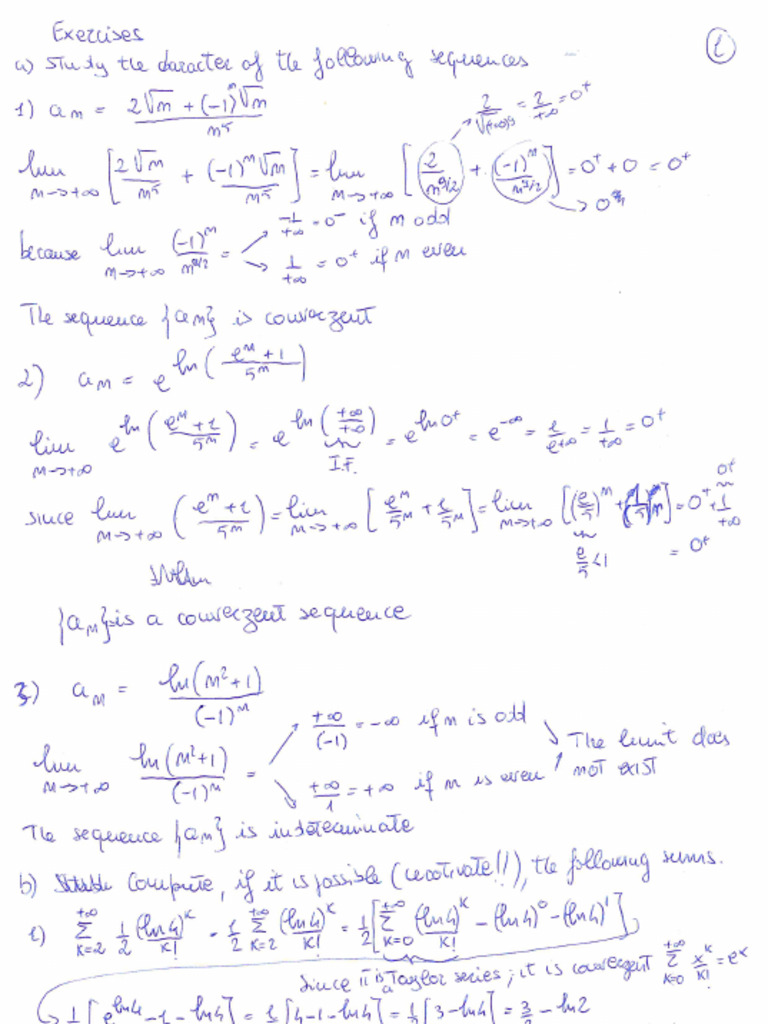 Exercises
①
a) Study the character of the following sequences
1) a_n = (2√n + (-1)^n √n) / n^5
2/√(+∞)^9 = 2/+∞ = 0^+
lim_{n→+∞} [2√n/n^5 + (-1)^n √n/n^5] = lim_{n→+∞} [2/n^{9/2} + (-1)^n/n^{9/2}] = 0^+ + 0 = 0^+
because lim_{n→+∞} (-1)^n/n^{9/2} = ↗ -1/+∞ = 0^- if n odd
↘ 1/+∞ = 0^+ if n even
The sequence {a_n} is convergent
2) a_n = e^{ln((e^n + 1)/5^n)}
lim_{n→+∞} e^{ln((e^n + 1)/5^n)} = e^{ln(+∞/+∞)} = e^{ln 0^+} = e^{-∞} = 1/e^{+∞} = 1/+∞ = 0^+
I.F.
since lim_{n→+∞} ((e^n + 1)/5^n) = lim_{n→+∞} [e^n/5^n + 1/5^n] = lim_{n→+∞} [(e/5)^n + (1/5)^n] = 0^+ + 1/+∞
0^+
e/5 < 1
= 0^+
{a_n} is a convergent sequence
3) a_n = ln(n^2+1)/(-1)^n
lim_{n→+∞} ln(n^2+1)/(-1)^n = ↗ +∞/(-1) = -∞ if n is odd
↘ +∞/1 = +∞ if n is even
The limit does
not exist
The sequence {a_n} is indeterminate
b) Compute, if it is possible (motivate!!), the following sums.
1) Σ_{k=2}^{+∞} 1/2 (ln 4)^k/k! = 1/2 Σ_{k=2}^{+∞} (ln 4)^k/k! = 1/2 [Σ_{k=0}^{+∞} (ln 4)^k/k! - (ln 4)^0 - (ln 4)^1]
Since it is a Taylor series, it is convergent Σ_{k=0}^{+∞} x^k/k! = e^x
→ 1/2 [e^{ln 4} - 1 - ln 4] = 1/2 [4 - 1 - ln 4] = 1/2 [3 - ln 4] = 3/2 - ln 2